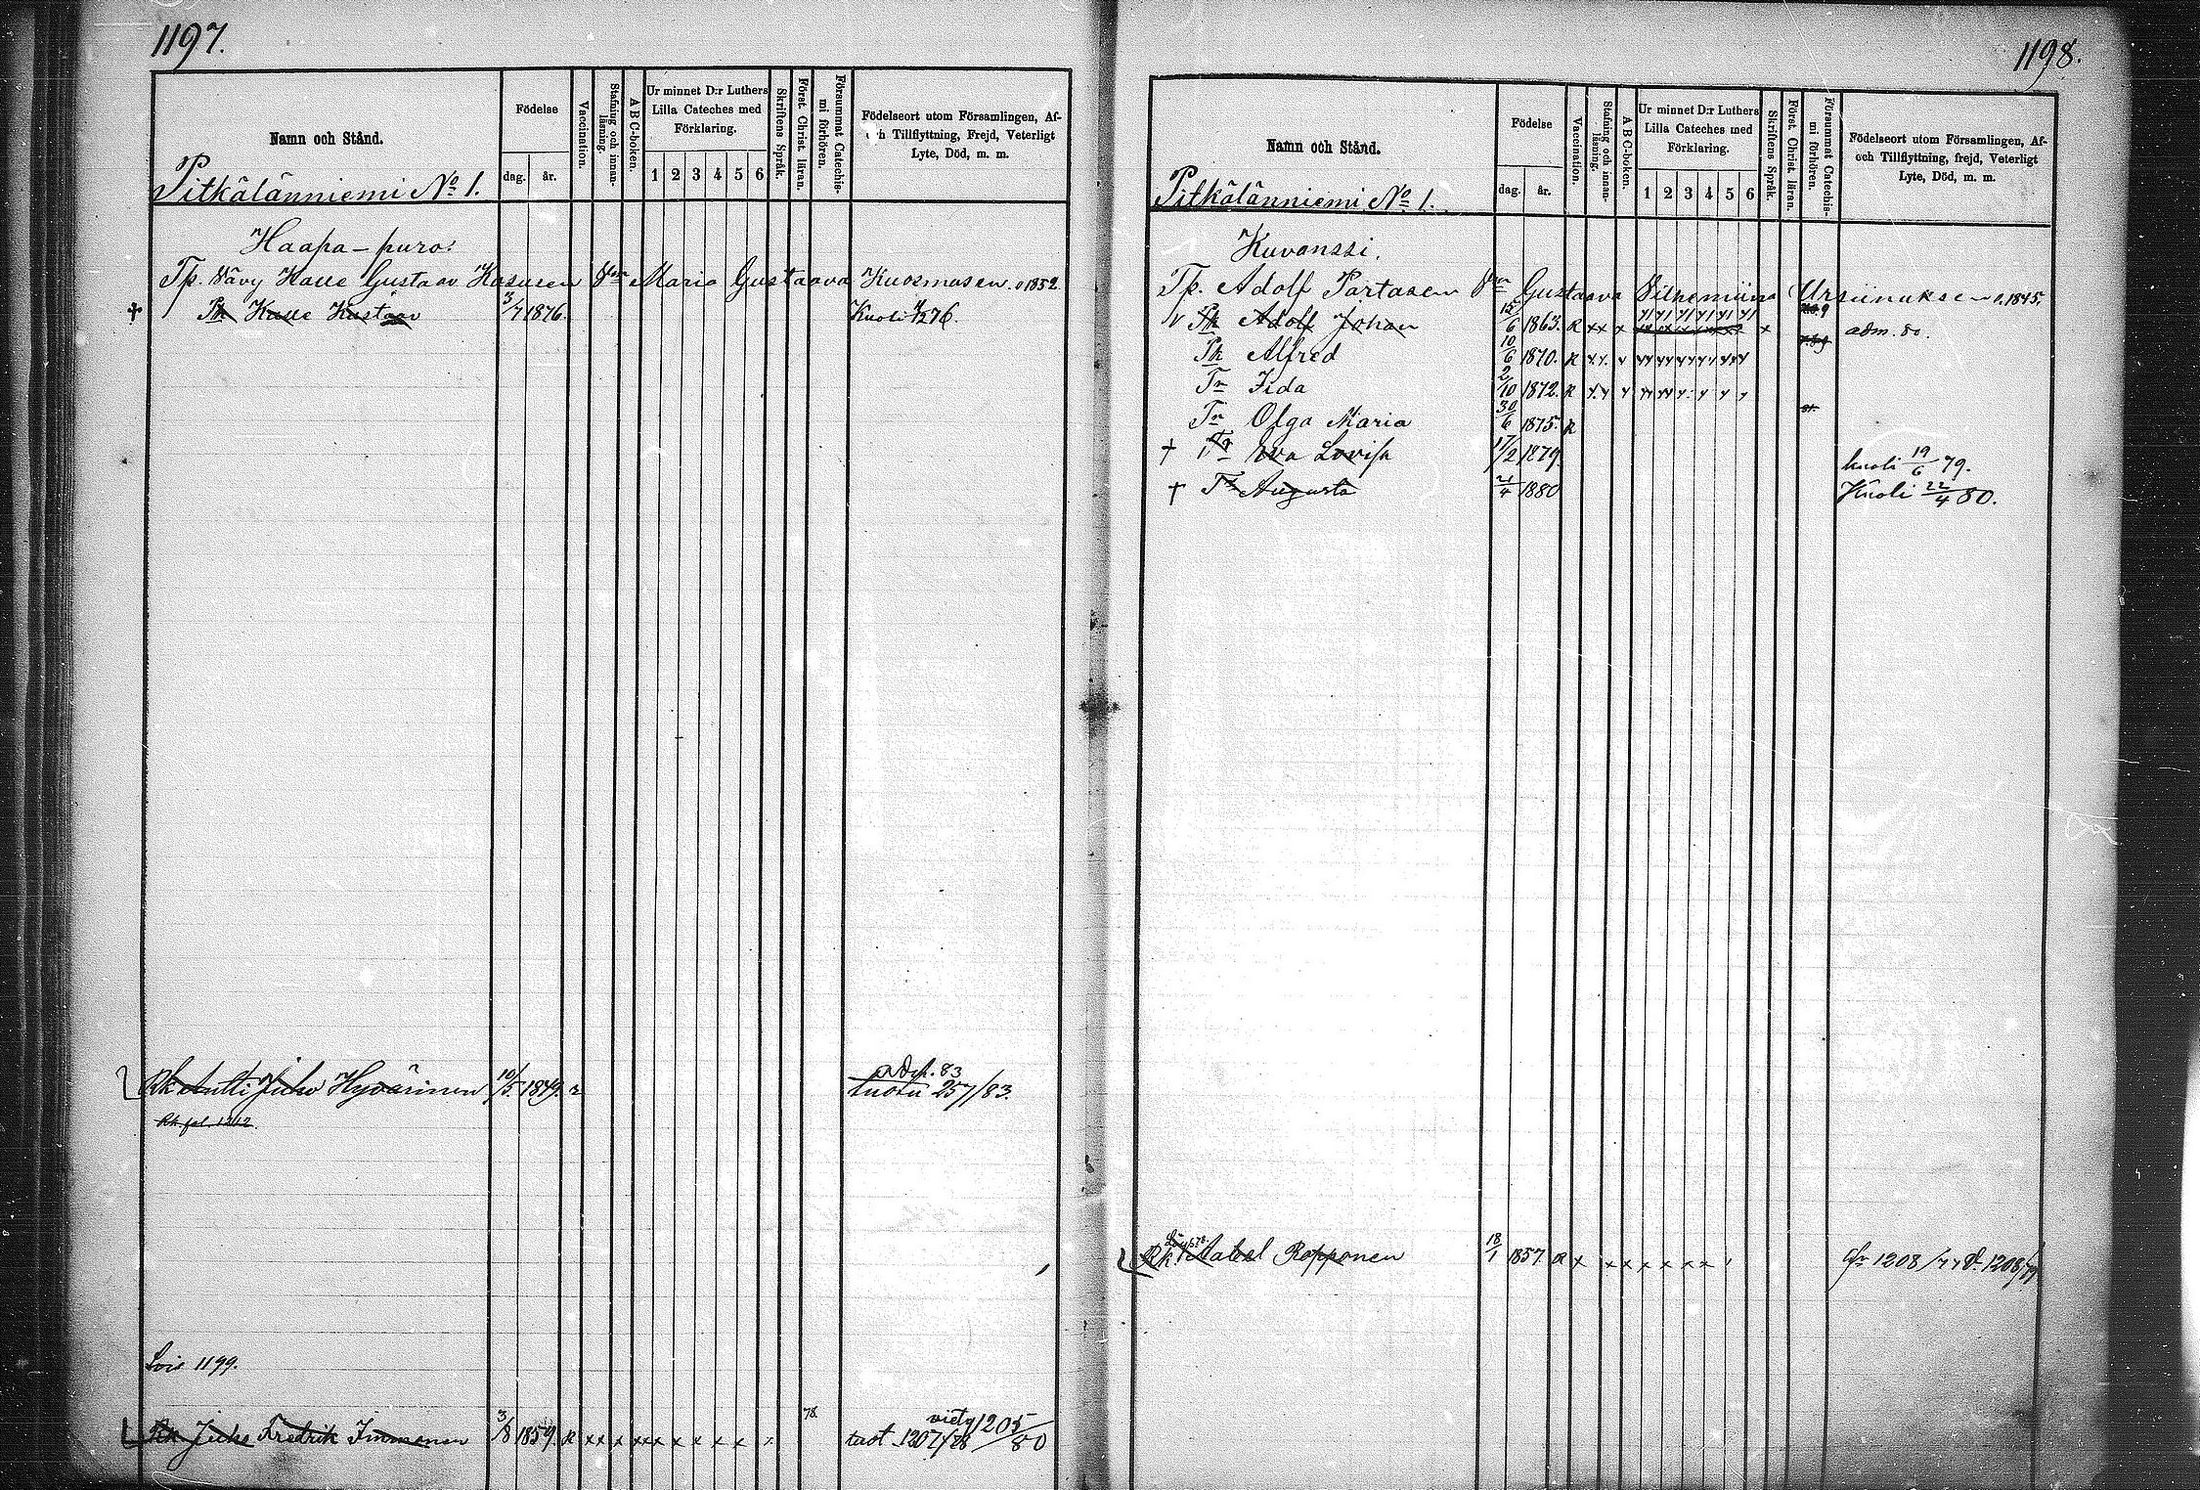 1197.
Namn och Stånd.
Födelse
dag. år.
Vaccination.
Stafning och innan-läsning.
A B C-boken.
Ur minnet D:r Luthers
Lilla Cateches med
Förklaring.
1 2 3 4 5 6
Skriftens Språk.
Först. Christ. läran.
Försummat Catechis-mi förhören.
Födelseort utom Församlingen, Af-
och Tillflyttning, Frejd, Veterligt
Lyte, Död, m. m.
Pitkälänniemi No 1.
Haapa-puro:
Tp. Vävy Kalle Gustaav Kasasen Vmo Maria Gustaava Kuosmasen. s 1852.
Pk Kalle Kustaav 3/7 1876. Kuoli 76.
adm. 83
Rk Antti Juho Hyvärinen 10/5 1849. tuotu 257/83.
Rk fol. 1212.
Lois 1199.
78.
viety 1205/80
Rk Juho Fredrik Immonen 3/8 1859. R x x x x x x x x x x tuot 1207/78
1198.
Namn och Stånd.
Födelse
dag. år.
Vaccination.
Stafning och innan-läsning.
A B C-boken.
Ur minnet D:r Luthers
Lilla Cateches med
Förklaring.
1 2 3 4 5 6
Skriftens Språk.
Först. Christ. läran.
Försummat Catechis-mi förhören.
Födelseort utom Församlingen, Af-
och Tillflyttning, frejd, Veterligt
Lyte, Död, m. m.
Pitkälänniemi No 1.
Kuvanssi.
Tp. Adolf Partasen Vmo Gustaava Vilhemiina Ursiinuksen s. 1845.
Pk Adolf Johan 15/6 1863. R x x x x adm. 80.
Pk Alfred 10/6 1870. R
Tr Iida 2/10 1872. R
Tr Olga Maria 30/6 1875. R
† Tr Eva Lovisa 17/2 1879. kuoli 19/6 79.
† Tr Augusta 21/4 1880 Kuoli 22/4 80.
Rk Aabel Ropponen 18/1 1857. R x x x x x x x 1208